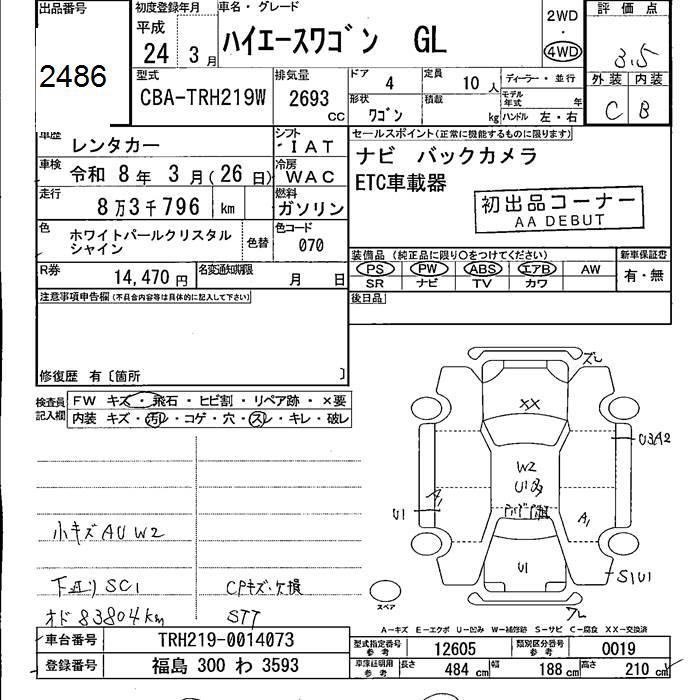 出品番号
2486
初度登録年月
平成
24 年 3 月
車名・グレード
ハイエースワゴン GL
2WD
・
4WD
評価点
3.5
外装 内装
C B
型式
CBA-TRH219W
排気量
2693
CC
ドア 4
定員 10 人
形状
ワゴン
積載 kg
ディーラー・並行
モデル年式 年
ハンドル 左・右
車歴
レンタカー
シフト
IAT
車検
令和 8 年 3 月(26 日)
冷房
WAC
走行
8万3千796 km
燃料
ガソリン
色
ホワイトパールクリスタル
シャイン
色替
色コード
070
R券
14,470 円
名変通知期限
月 日
セールスポイント(正常に機能するものに限ります)
ナビ バックカメラ
ETC車載器
初出品コーナー
AA DEBUT
装備品 (純正品に限り○をつけてください)
新車保証書
PS PW ABS エアB AW
SR ナビ TV カワ
有・無
後日品
注意事項申告欄(不具合内容等は具体的に記入して下さい)
修復歴 有〔箇所 〕
検査員
記入欄
FW キズ・飛石・ヒビ割・リペア跡・×要
内装 キズ・汚れ・コゲ・穴・スレ・キレ・破レ
小キズAUW2
下廻りSC1
オド 83804km
CPキズ欠損
STT
ズレ
XX
W2
U1多
U3A2
U1
A1
A1
U1
S1U1
スペア
A―キズ E―エクボ U―凹み W―補修跡 S―サビ C―腐食 XX―交換済
車台番号
TRH219-0014073
登録番号
福島 300 わ 3593
型式指定番号
参考
12605
類別区分番号
参考
0019
車庫証明用
参考
長さ 484 cm
幅 188 cm
高さ 210 cm